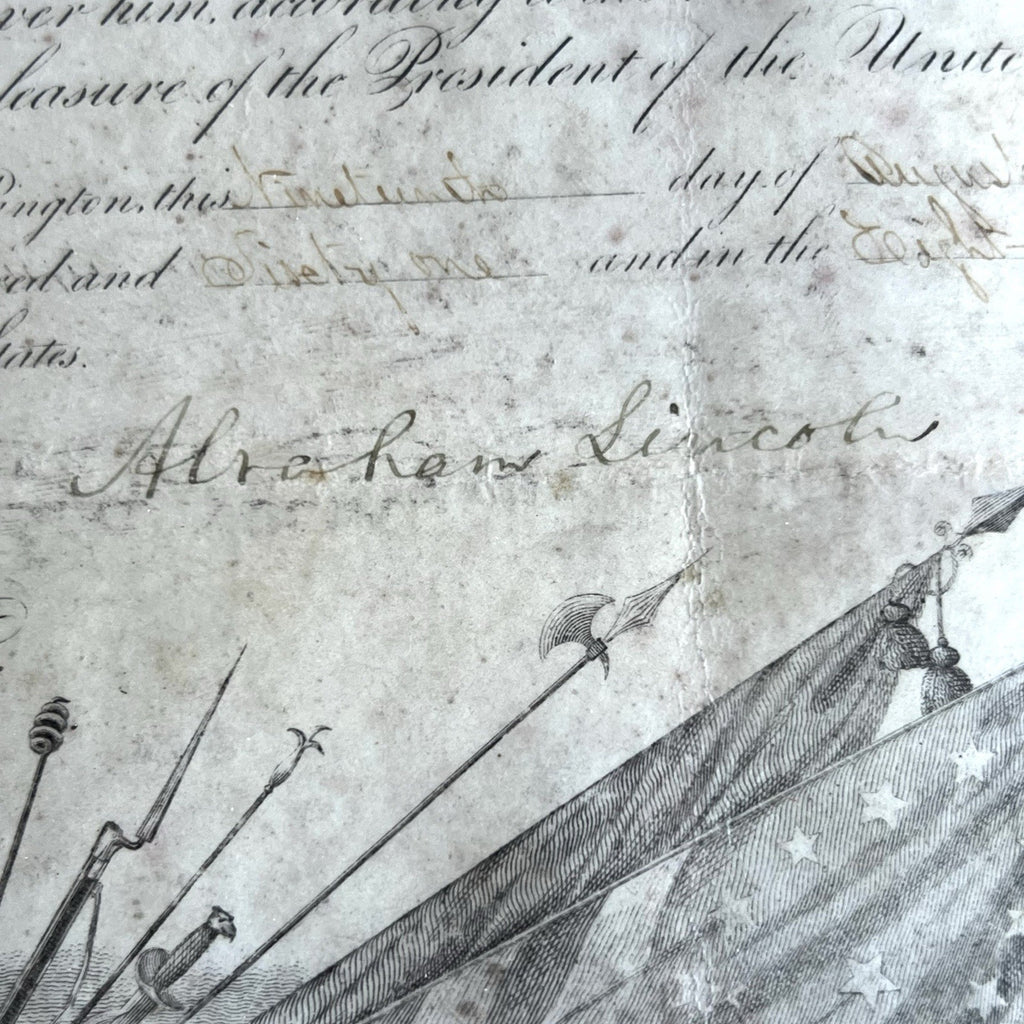 ver him, according to the
leasure of the President of the Unite
ington, this Nineteenth day of Augus
red and Sixty one and in the Eigh
tates.
Abraham Lincoln